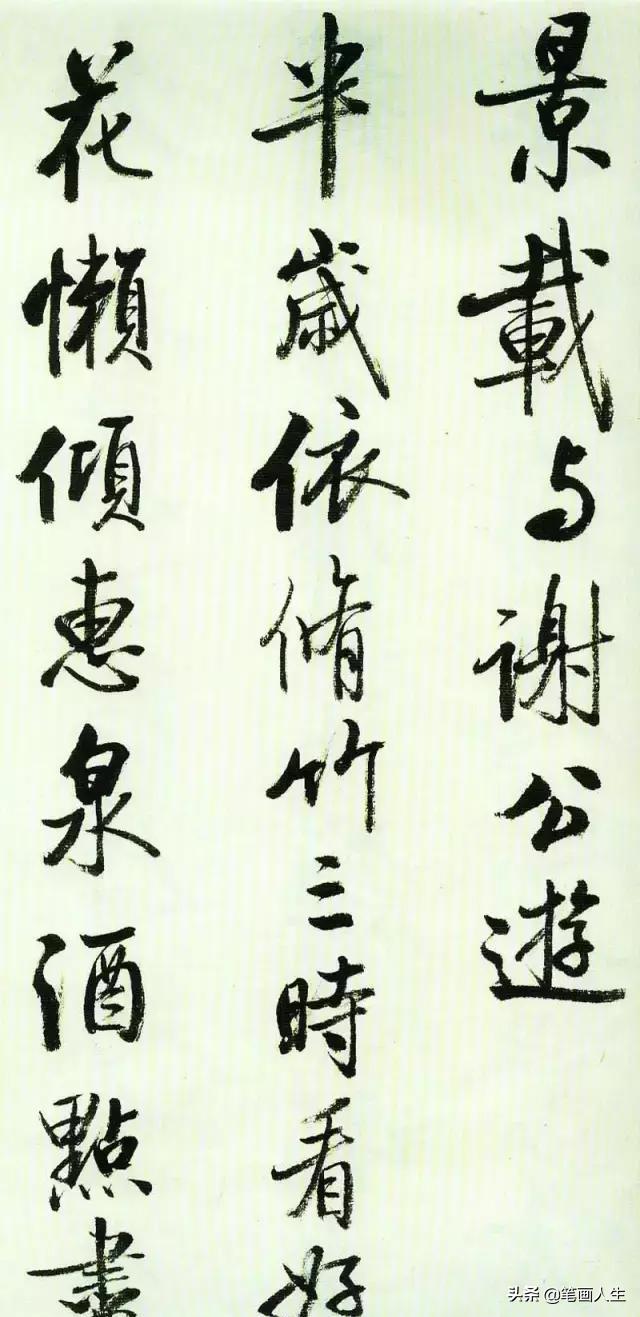 景載与謝公遊
半歲依脩竹三時看好
花懶傾惠泉酒點盡
头条 @笔画人生